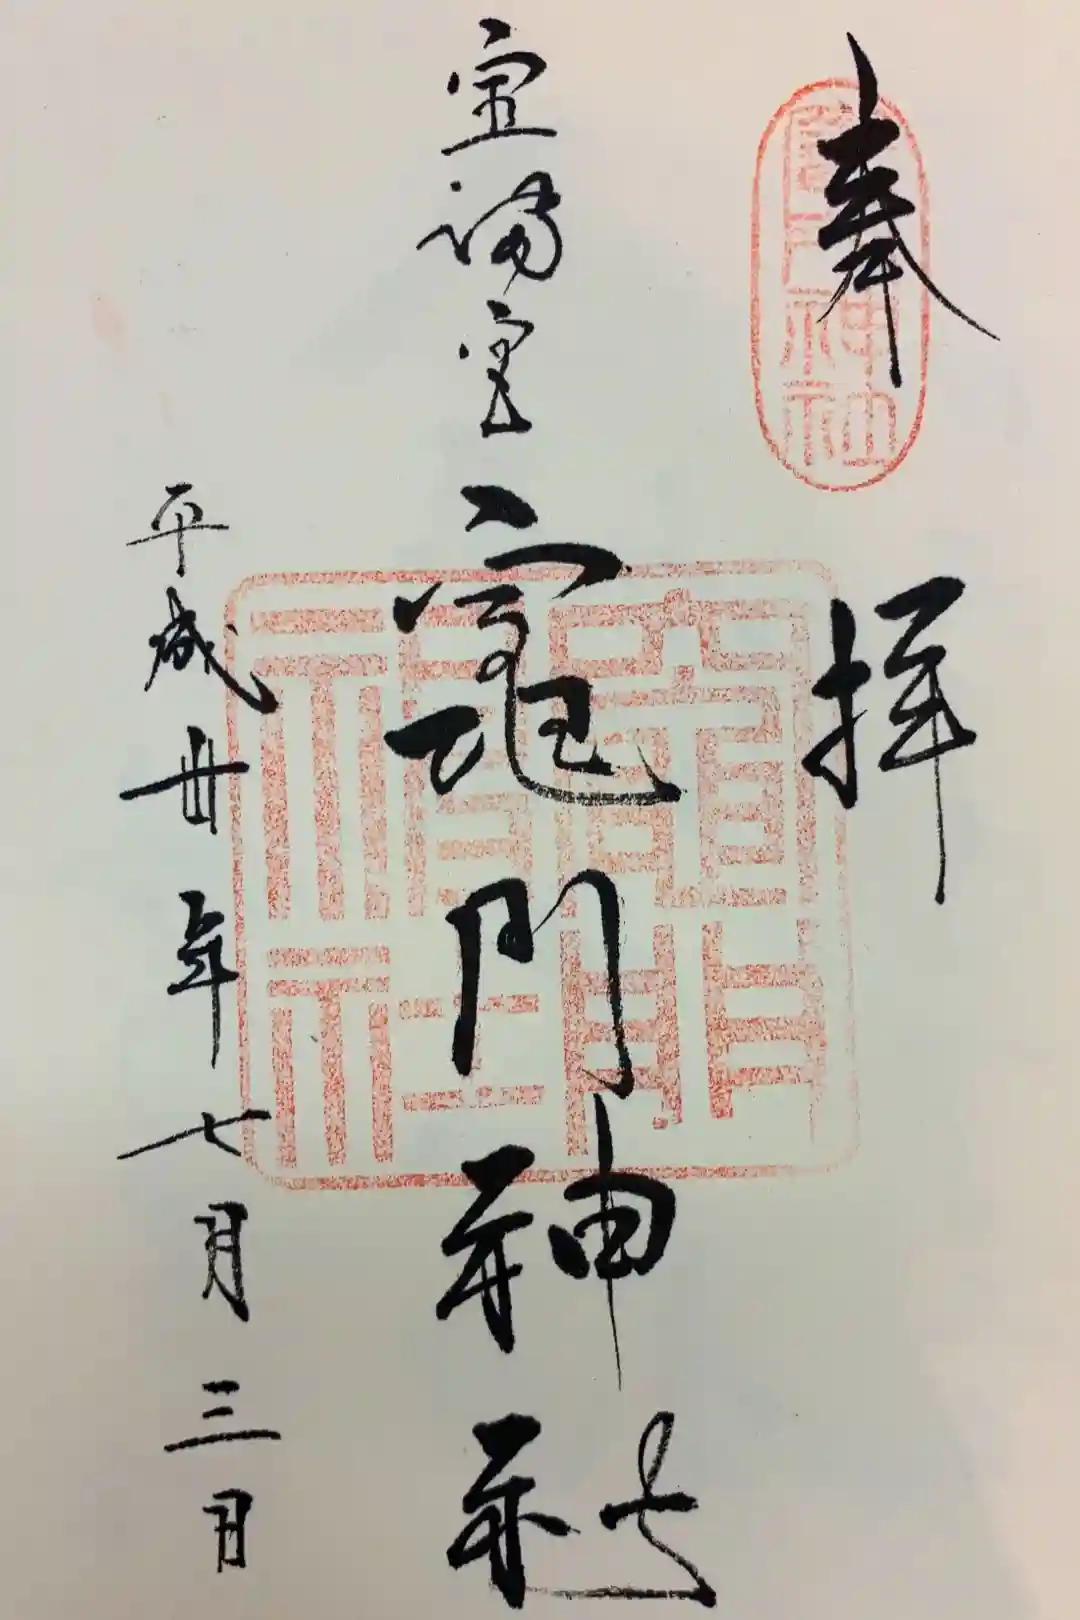 奉拝
宝満宮 竈門神社
平成丗年七月三日
竈門神社
竈門神社